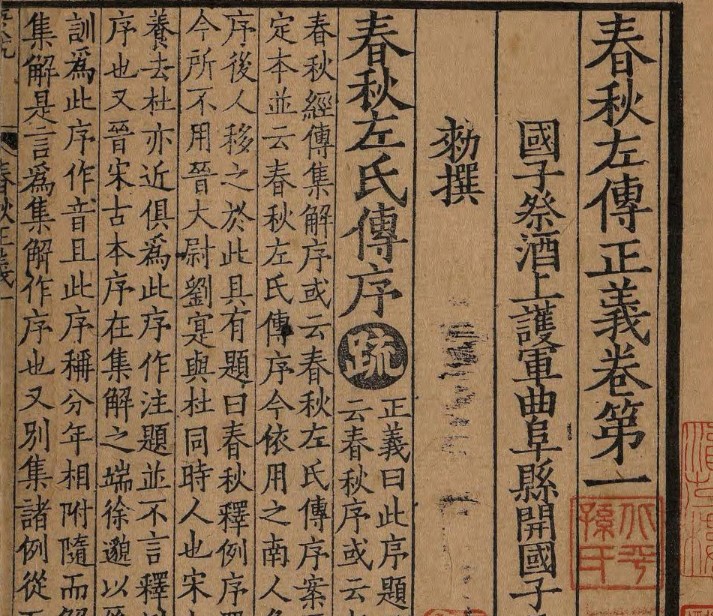 春秋左傳正義卷第一
國子祭酒上護軍曲阜縣開國子
勑撰
春秋左氏傳序疏
正義曰此序題
云春秋序或云
春秋經傳集解序或云春秋左氏傳序案
定本並云春秋左氏傳序今依用之南人
序後人移之於此具有題曰春秋釋例序
今所不用晉大尉劉寔與杜同時人也宋
養去杜亦近俱爲此序作注題並不言釋
序也又晉宋古本序在集解之端徐邈以晉
訓爲此序作音且此序稱分年相附隨而解
集解是言爲集解作序也又別集諸例從
春秋正義一
北平孫氏